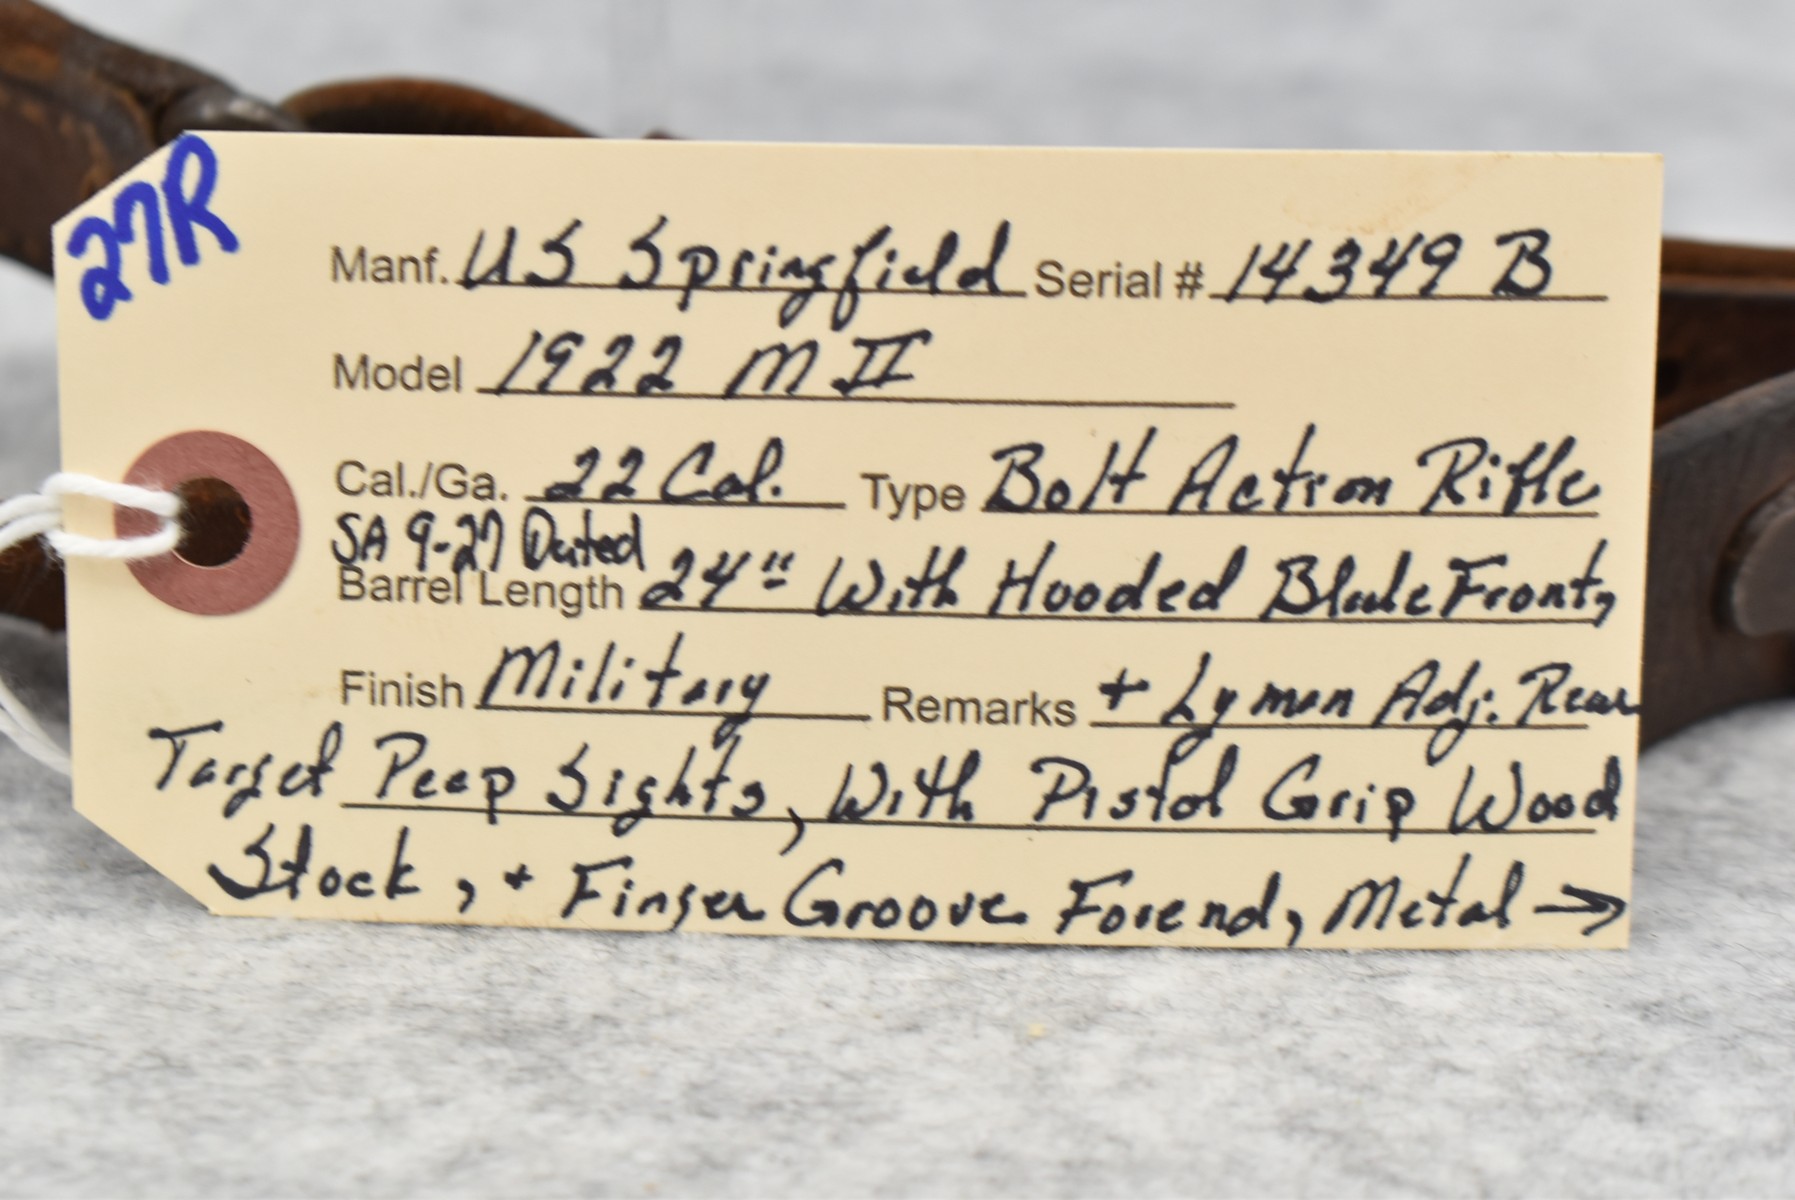 27R
Manf. US Springfield Serial # 14349 B
Model 1922 M II
Cal./Ga. 22 Cal. Type Bolt Action Rifle
SA 9-27 Dated
Barrel Length 24" With Hooded Blade Front,
Finish Military Remarks + Lyman Adj. Rear
Target Peep Sights, With Pistol Grip Wood
Stock, + Finger Groove Forend, Metal →